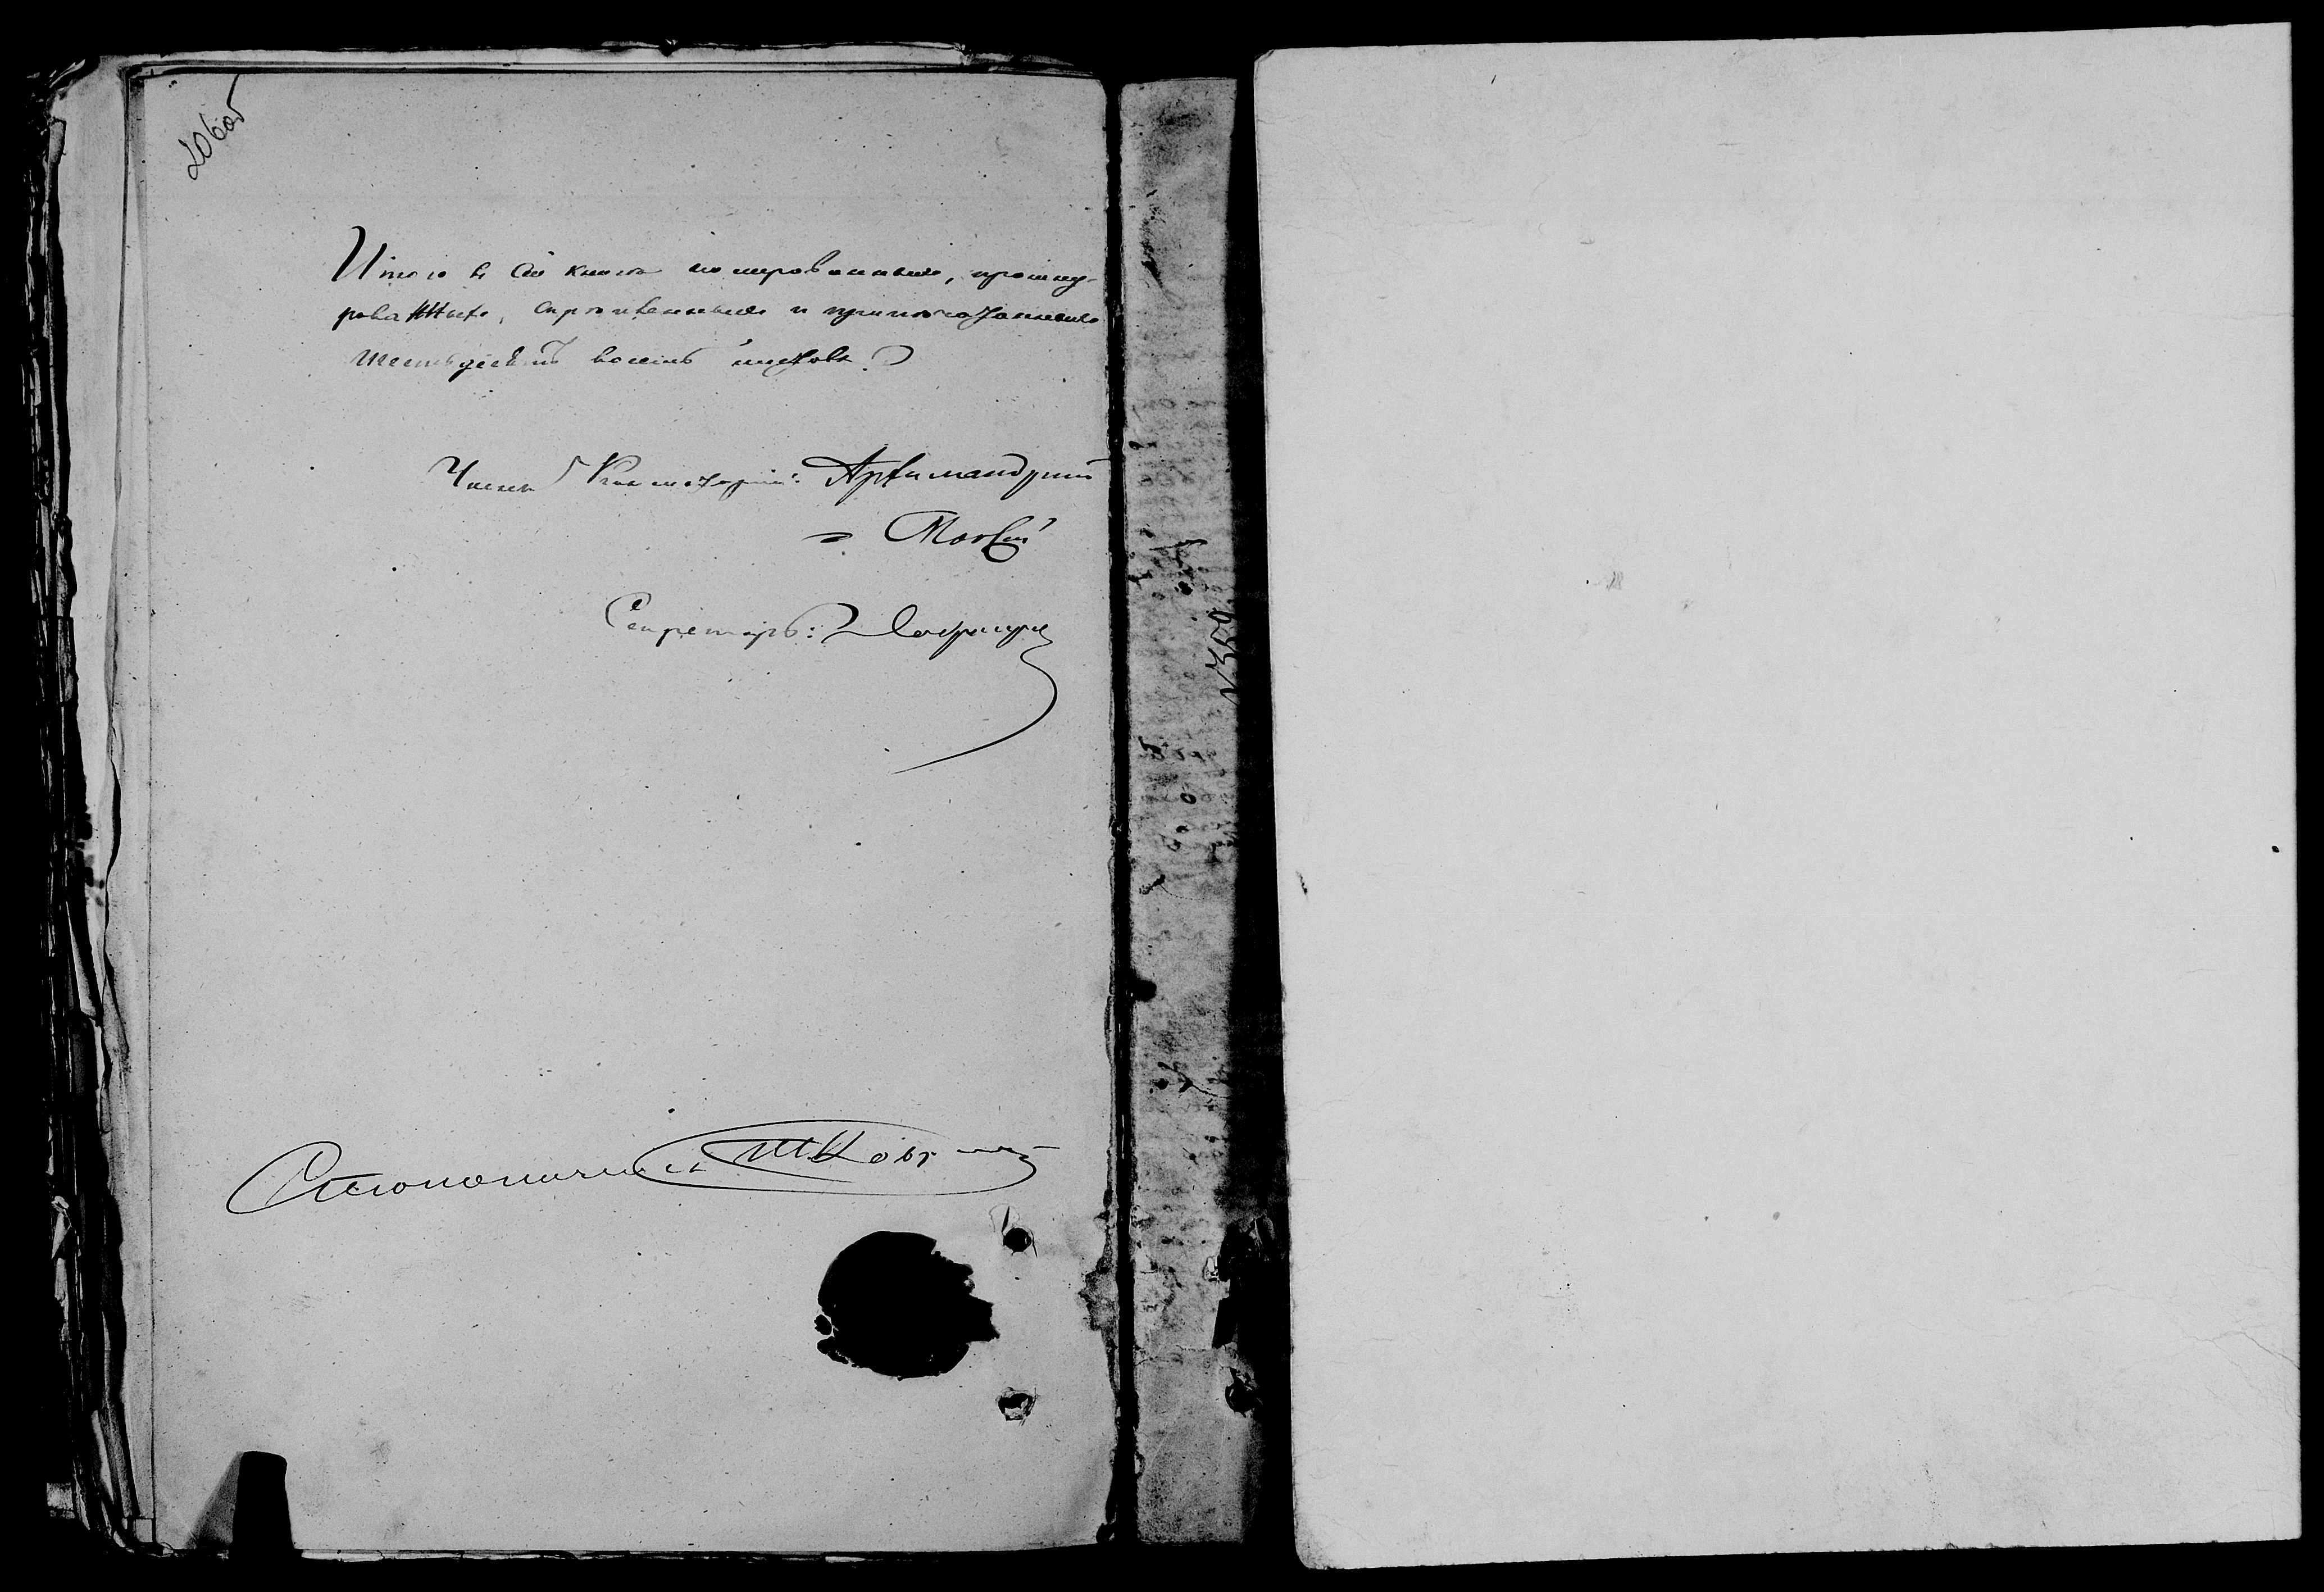 206об
Итого в сей книге номерованныхъ, прошну-
рованныхъ, скрепленныхъ и припечатанныхъ
шестьдесятъ восемь листовъ.
Членъ Консисторіи: Архимандритъ
Секретарь:
Столоначальникъ
№ 350